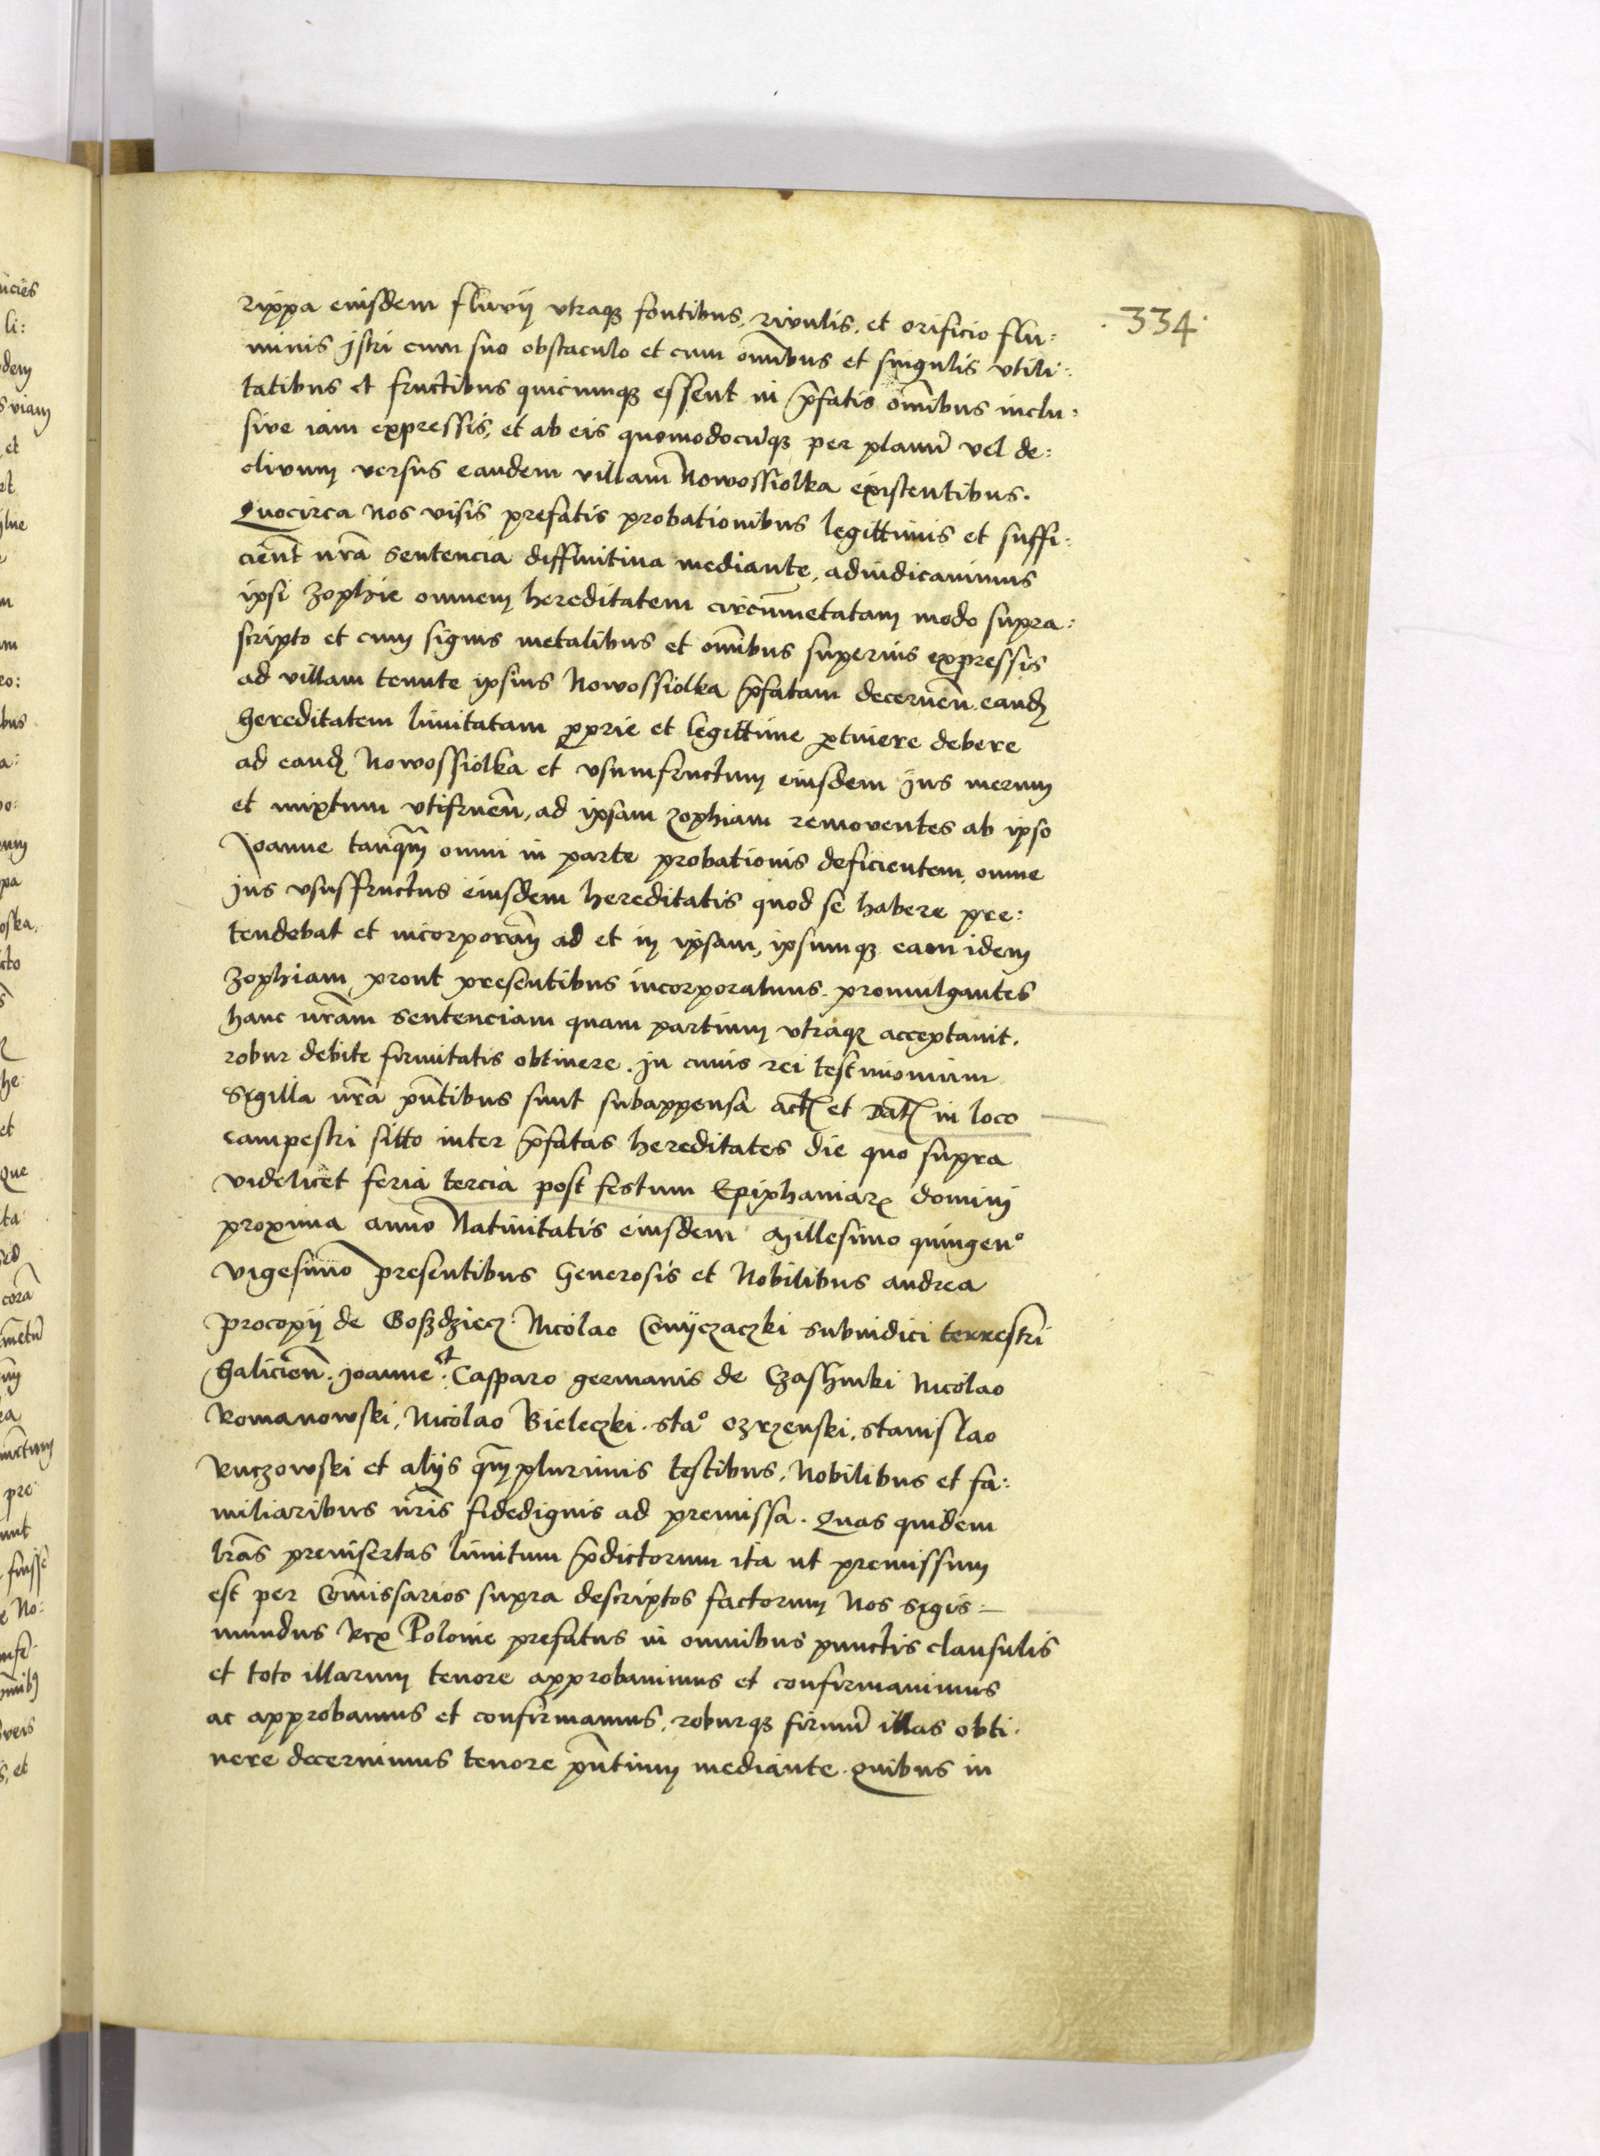 334
rippa eiusdem fluvij vtraqꝫ fontibus, rivulis, et orificio flu:
minis istri cum suo obstaculo et cum om̄ibus et singulis vtili:
tatibus et fructibus quicumqꝫ essent in p̄fatis om̄ibus inclu:
sive iam expressis, et ab eis quomodocūqꝫ per planū vel de:
clivum versus eandem villam Nowossiolka existentibus.
Quocirca nos visis prefatis probationibus legittimis et suffi:
cien̄t nr̄a sentencia diffinitiua mediante, adiudicauimus
ipsi Zophie omnem hereditatem circūmetatam modo supra:
scripto et cum signis metalibus et om̄ibus superius expressis
ad villam tenute ipsius Nowossiolka p̄fatam decernen̄. eandꝫ
hereditatem limitatam ꝓprie et legittime ꝑtinere debere
ad eandꝫ Nowossiolka et vsumfructum eiusdem jus merum
et mixtum vtifruen̄, ad ipsam zophiam removentes ab ipso
Joanne tanqūm omni in parte probationis deficientem, omne
jus vsusfructus eiusdem hereditatis quod se habere pre:
tendebat et incorporan̄ ad et in ipsam, ipsumqꝫ eam idem
Zophiam, prout presentibus incorporamus. promulgantes
hanc nr̄am sentenciam quam partium vtraqꝫ acceptauit.
robur debite firmitatis obtinere. jn cuius rei testimonium
Sigilla nr̄a pn̄tibus sunt subappensa actꝫ et Datꝫ in loco
campestri sitto inter p̄fatas hereditates die quo supra
videlicet feria tercia post festum Epiphaniarꝫ domini
proxima anno Natiuitatis eiusdem Millesimo quingen°
vigesimo presentibus Generosis et Nobilibus andrea
procopij de Goszdziecz. Nicolao Cnijczaczki subiudici terrestri
Halicien̄. joanne et Casparo germanis de Czashinki Nicolao
Romanowski, Nicolao Bieleczki. sta° ozrzenski, stanislao
Kuczowski et alijs qūmplurimis testibus, Nobilibus et fa:
miliaribus nr̄is fidedignis ad premissa. Quas quidem
lr̄as preinsertas limitum p̄dictorum ita ut premissum
est per Com̄issarios supra descriptos factorum Nos Sigis:
mundus Rex Polonie prefatus in omnibus punctis clausulis
et toto illarum tenore approbauimus et confirmauimus
ac approbamus et confirmamus, roburqꝫ firmū illas obti.
nere decernimus tenore pn̄tium mediante. Quibus in